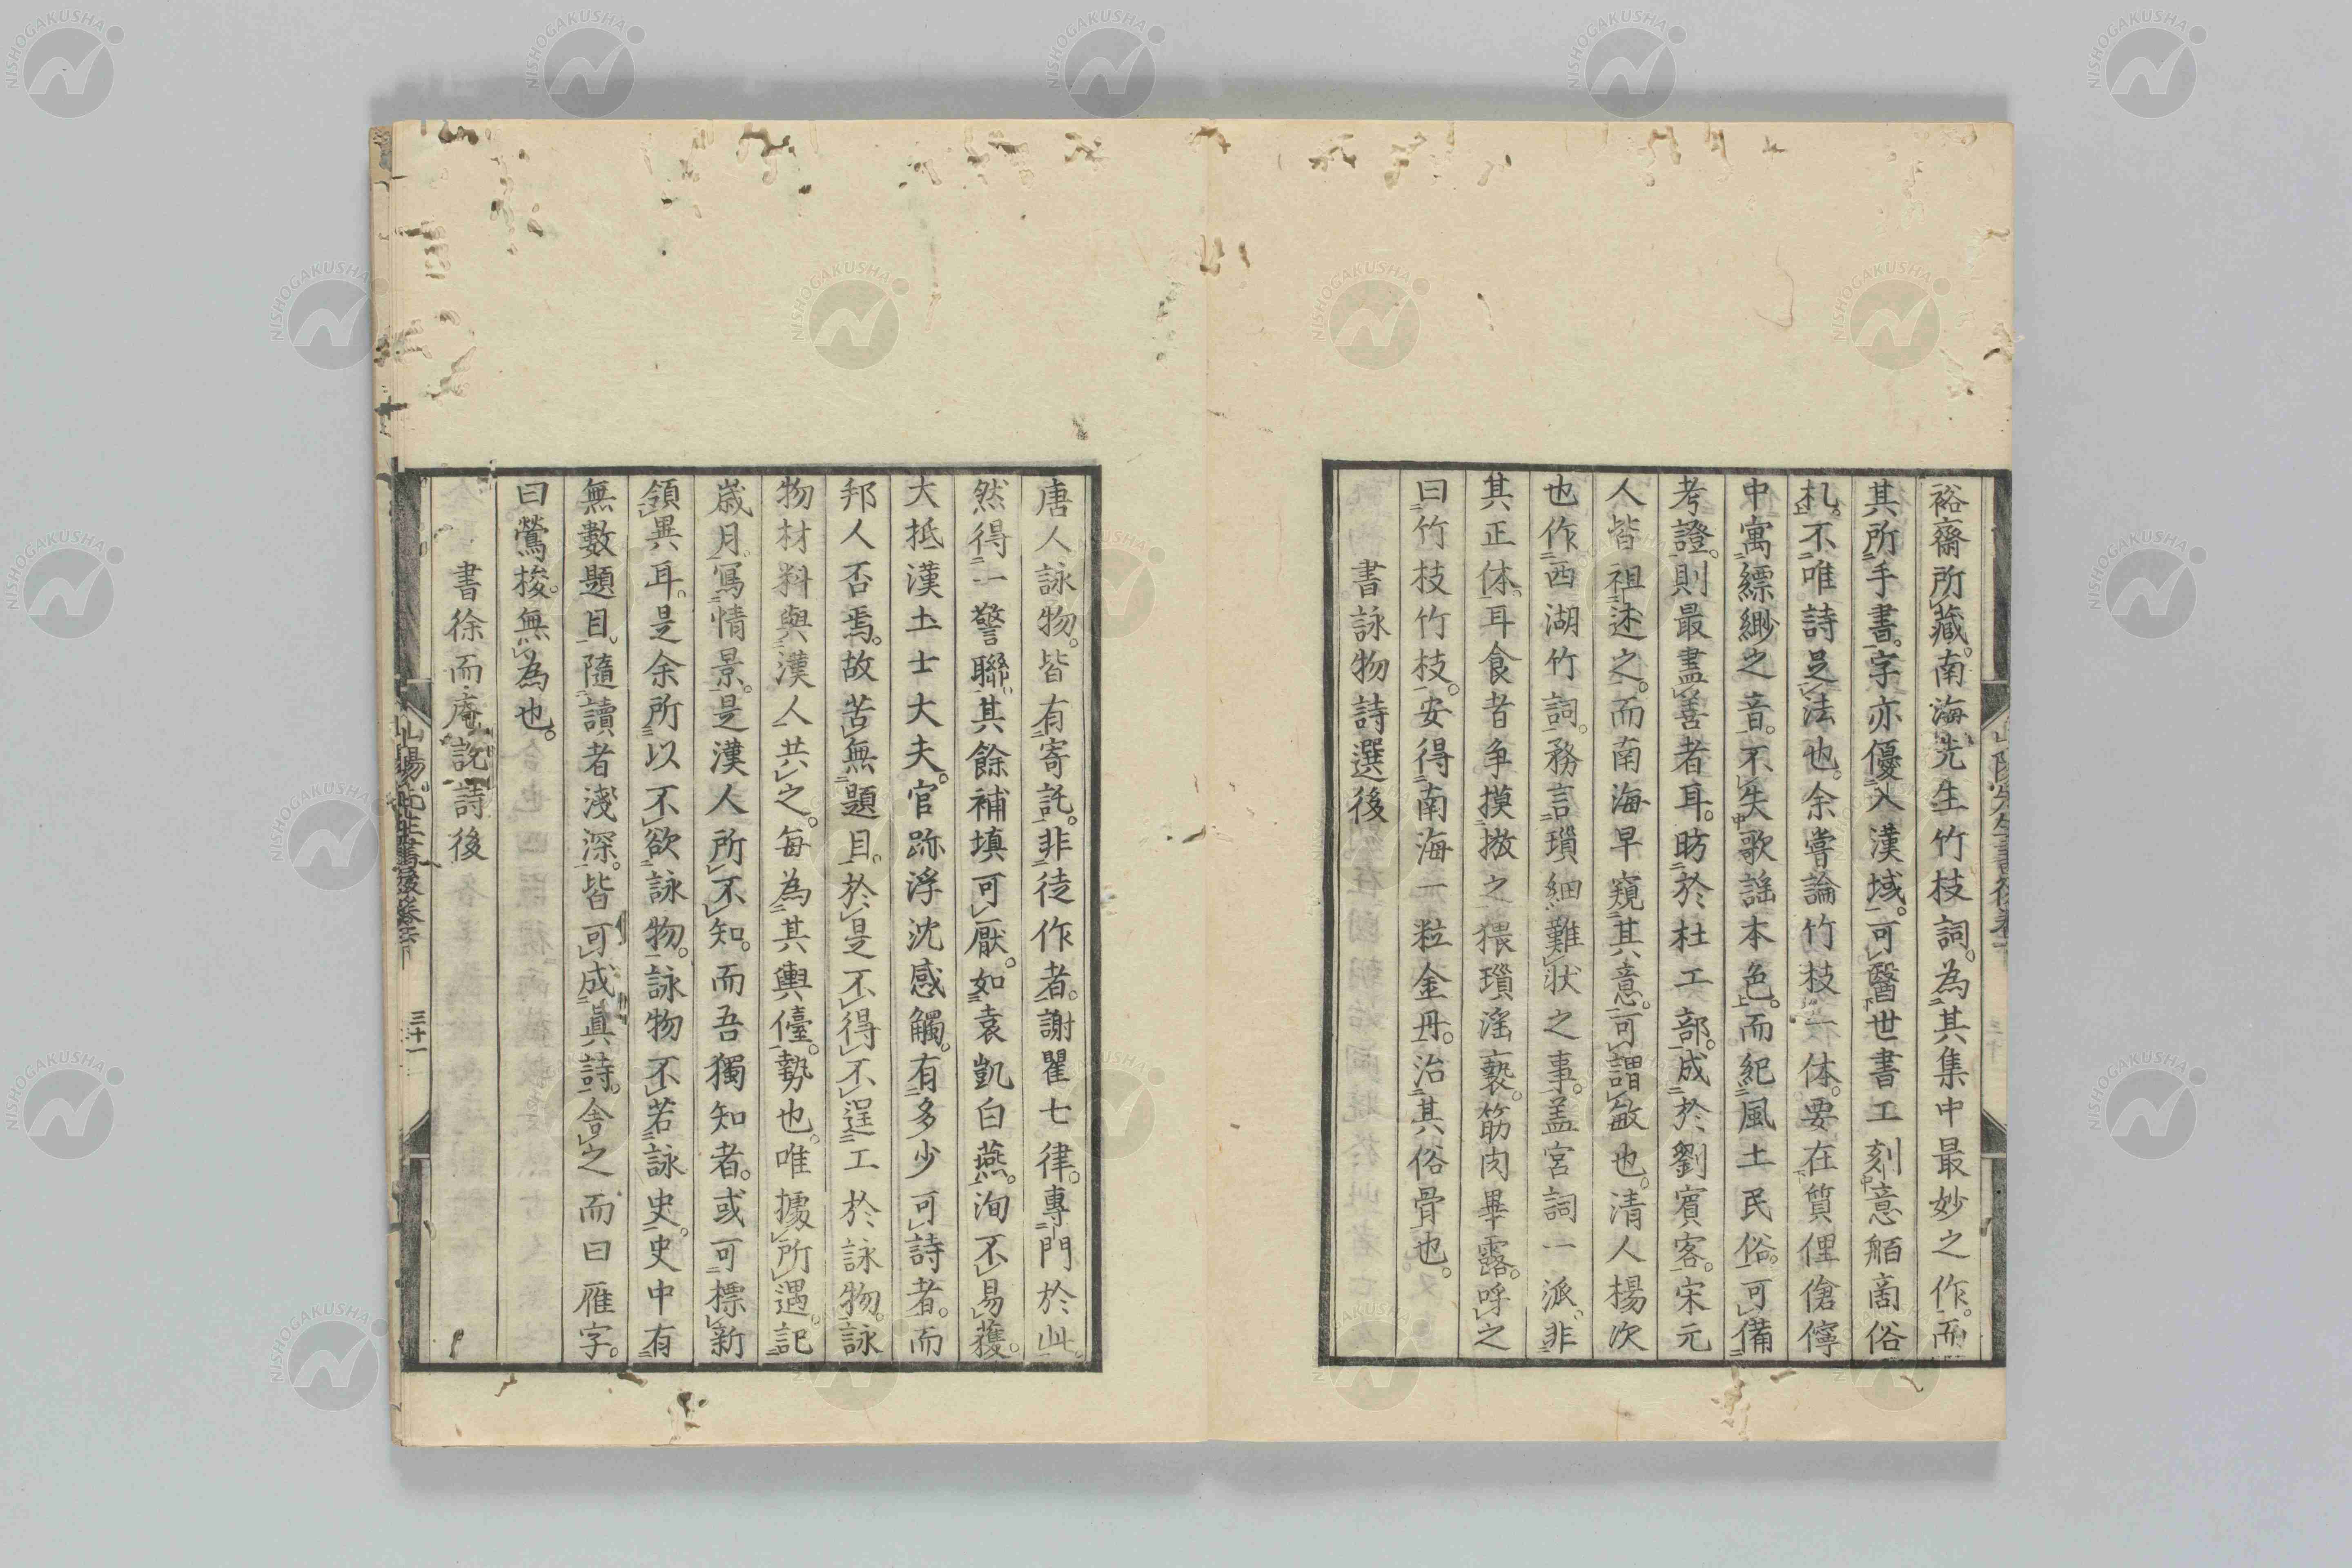 裕齋所藏。南海先生竹枝詞。為其集中最妙之作。而
其所手書。字亦優入漢域。可醫世書工刻意舶啇俗
札。不唯詩足法也。余嘗論竹枝一体。要在質俚傖儜
中寓縹緲之音。不失歌謡本色。而紀風土民俗。可備
考證。則最盡善者耳。昉於杜工部。成於劉賓客。宋元
人皆祖述之。而南海早窺其意。可謂敏也。清人楊次
也作西湖竹詞。務言瑣細難状之事。盖宮詞一派。非
其正体。耳食者争摸擬之猥瑣滛褻。筋肉畢露。呼之
曰竹枝竹枝。安得南海一粒金丹。治其俗骨也。
書詠物詩選後
唐人詠物。皆有寄託。非徒作者。謝瞿七律。專門於此。
然得一警聯。其餘補填可厭。如袁凱白燕。洵不易獲。
大抵漢土士大夫。官跡浮沈感觸。有多少可詩者。而
邦人否焉。故苦無題目。於是不得不逞工於詠物。詠
物材料與漢人共之。每為其輿儓。勢也。唯據所遇記
歳月。寫情景。是漢人所不知。而吾獨知者。或可標新
領異耳。是余所以不欲詠物。詠物不若詠史。史中有
無數題目。隨讀者淺深。皆可成眞詩。舎之而曰雁字。
曰鶯梭。無為也。
書徐而庵説詩後
三十一